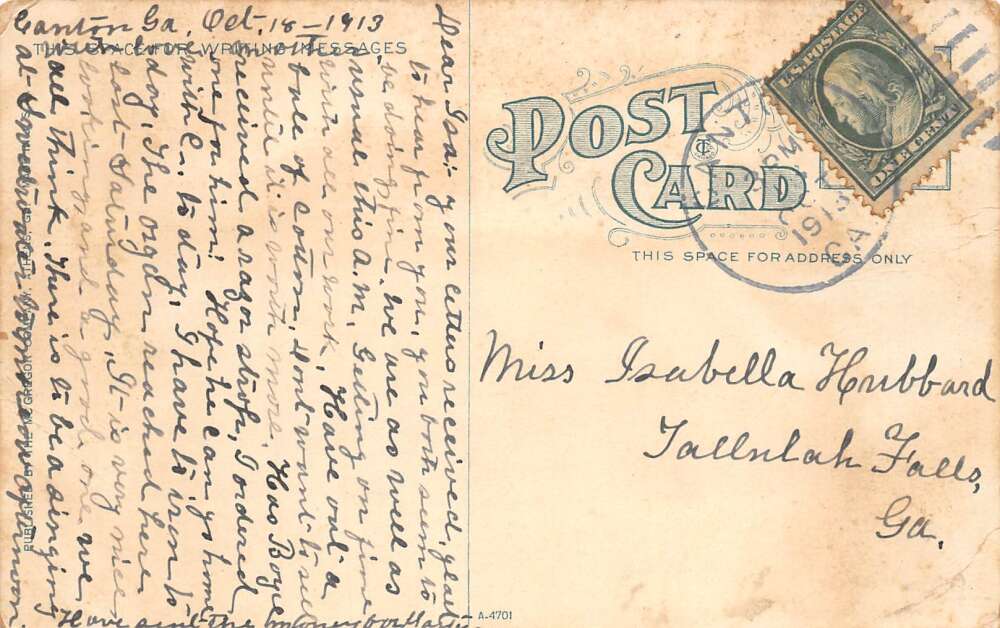 Canton Ga, Oct, 18-1913
THIS SPACE FOR WRITING MESSAGES
Dear Isa: your letters received, glad
to hear from you, you both seem to
be doing fine. We are as well as
usual this a.m. Getting on fine
with all our work, Have out a
bale of cotton, dont want to sell
until it is worth more. Has Boyce
received a razor strop, I ordered
one for him? Hope he can go home
with C. to day, I have to iron to
day, The organ reached here
last Saturday, It is very nice
looking and a good one, we
all think. There is to be a singing
at afternoon.
Have sent the money
PUBLISHED BY THE McGREGOR CO., ATHENS, GA.
POST CARD
THIS SPACE FOR ADDRESS ONLY
U.S. POSTAGE
ONE CENT
1913
GA.
Miss Isabella Hubbard
Tallulah Falls,
Ga.
A-4701